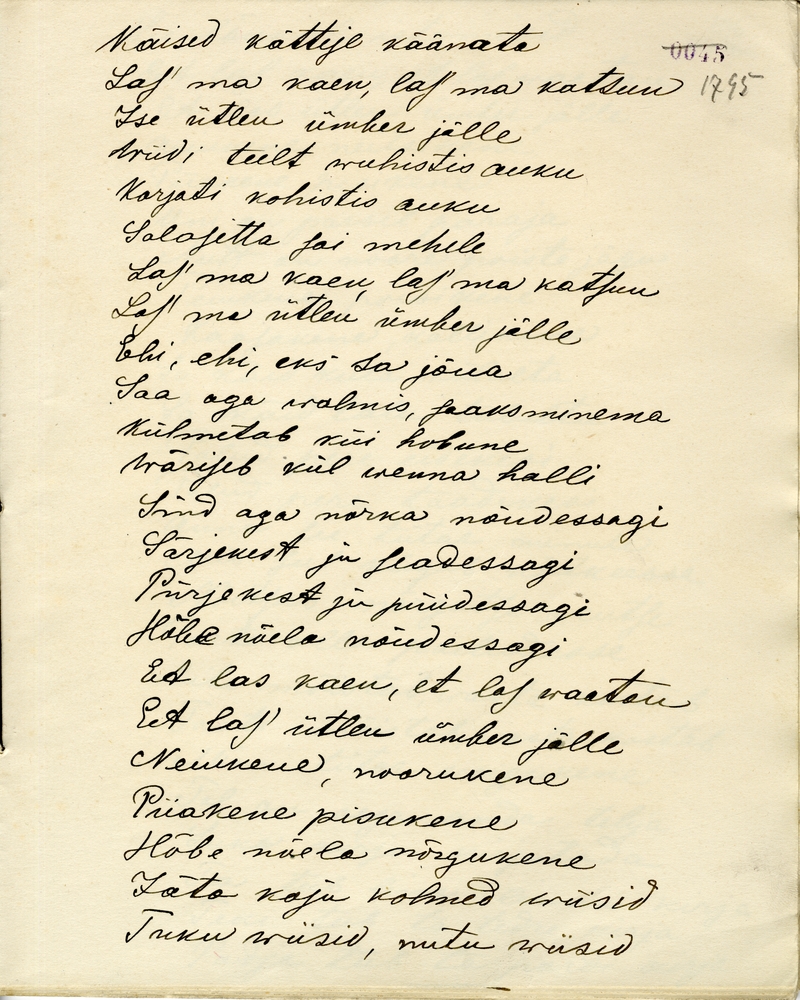 Käised kättiẛe käänata
0045
Laſ' ma kaen, laſ' ma katsun
1795
Ise ütlen ümber jälle
Wiidi teilt wuhistis auku
Karjati kohistis auku
Salaſetta ſai mehele
Laſ' ma kaen, laſ' ma katſun
Laſ' ma ütlen ümber jälle
Ehi, ehi, eks sa jõua
Saa aga walmis, ſaaks minema
Külmetab küi hobune
Wäriſeb kül wenna halli
Sind aga nõrka nõudessagi
Särjekest ju ſeadessagi
Pürjekest ju püüdessagi
Hõbe nõela nõudessagi
Et las kaen, et laſ waatan
Et laſ' ütlen ümber jälle
Neiukene, noorukene
Piiakene pisukene
Hõbe nõela nõrgukene
Jäta koju kolmed wiisid
Tuku wiisid, nutu wiisid